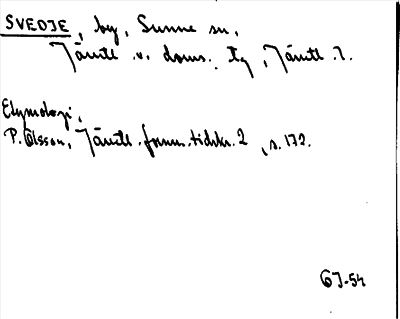 SVEDJE, by, Sunne sn,
Jämtl. v. doms. tg, Jämtl. l.
Etymologi,
P. Olsson, Jämtl. fornm. tidskr. 2, s. 172.
GJ-54